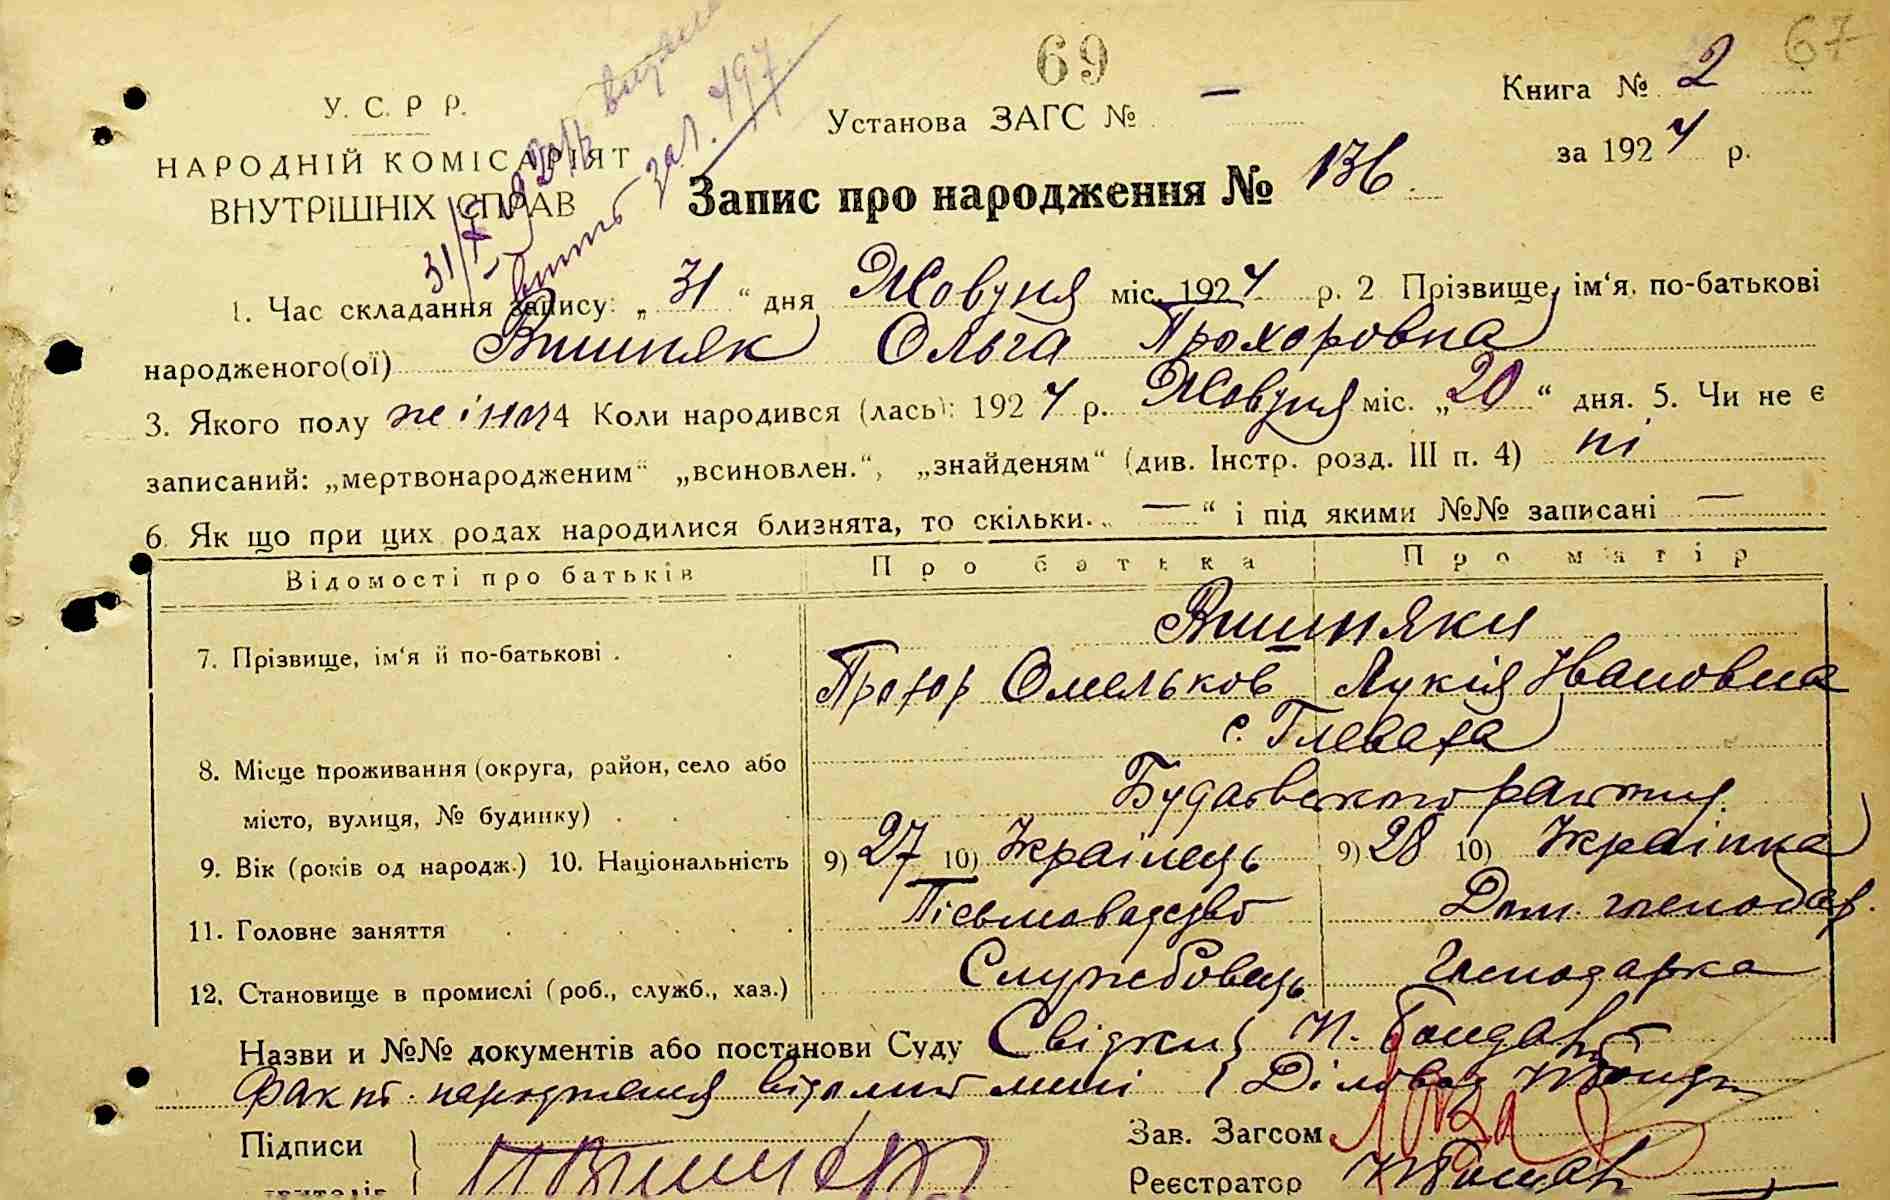 67
69
Книга № 2
У. С. Р Р.
Установа ЗАГС № —
НАРОДНІЙ КОМІСАРІЯТ
за 1924 р.
ВНУТРІШНІХ СПРАВ
Запис про народження № 136
31/X
зап. 197
1. Час складання запису: „31“ дня Жовтня міс. 1924 р. 2 Прізвище, ім'я, по-батькові
народженого(ої) Вишняк Ольга Прохоровна
3. Якого полу жіноч 4 Коли народився (лась): 1924 р. Жовтня міс. „20“ дня. 5. Чи не є
записаний: „мертвонародженим“ „всиновлен.“, „знайденям“ (див. Інстр. розд. III п. 4) ні
6. Як що при цих родах народилися близнята, то скільки „—“ і під якими №№ записані —
Відомості про батьків Про батька Про матір
Вишняки
7. Прізвище, ім'я й по-батькові . Прохор Омельков Лукія Івановна
с. Глеваха
8. Місце проживання (округа, район, село або
місто, вулиця, № будинку) . . Будаєвского району
9. Вік (років од народж.) 10. Національність 9) 27 10) Українець 9) 28 10) Українка
11. Головне заняття Пісьмоводство Дом. господар.
12. Становище в промислі (роб., служб., хаз.) Службовець Господарка
Назви и №№ документів або постанови Суду Свідки
Факт народження відомий мені Діловод
Підписи
Зав. Загсом
Реєстратор